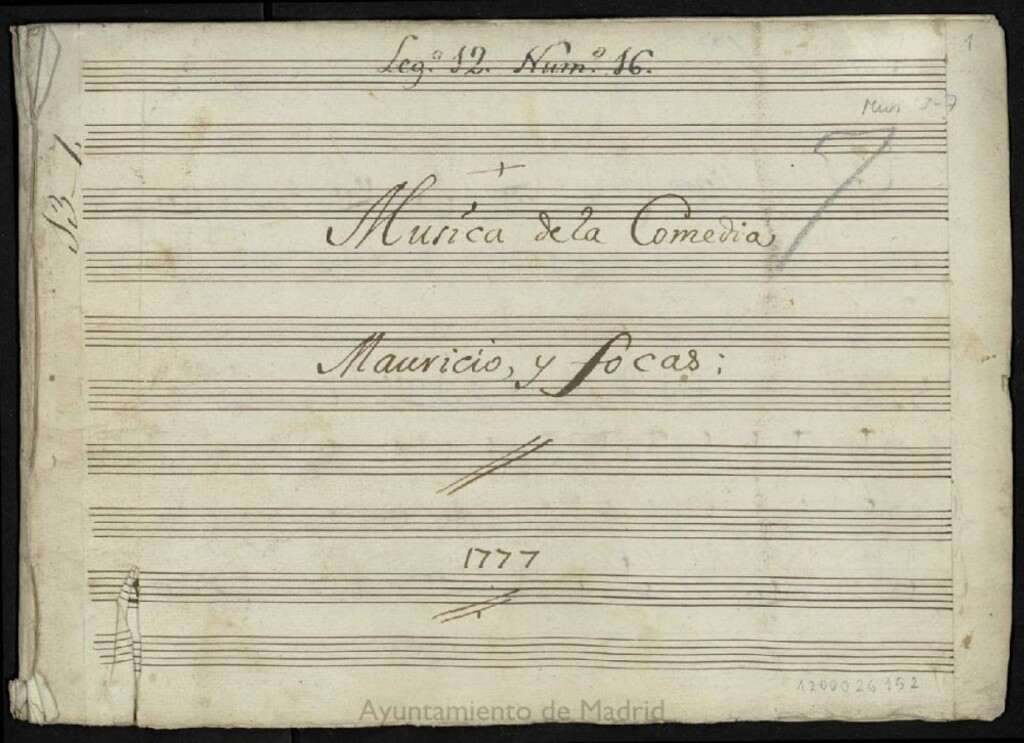 Leg.º 12. Num.º 16.
1
Mus 13-7
13-7
7
Musica de la Comedia,
Mauricio, y Focas;
1777
1200026152
Ayuntamiento de Madrid